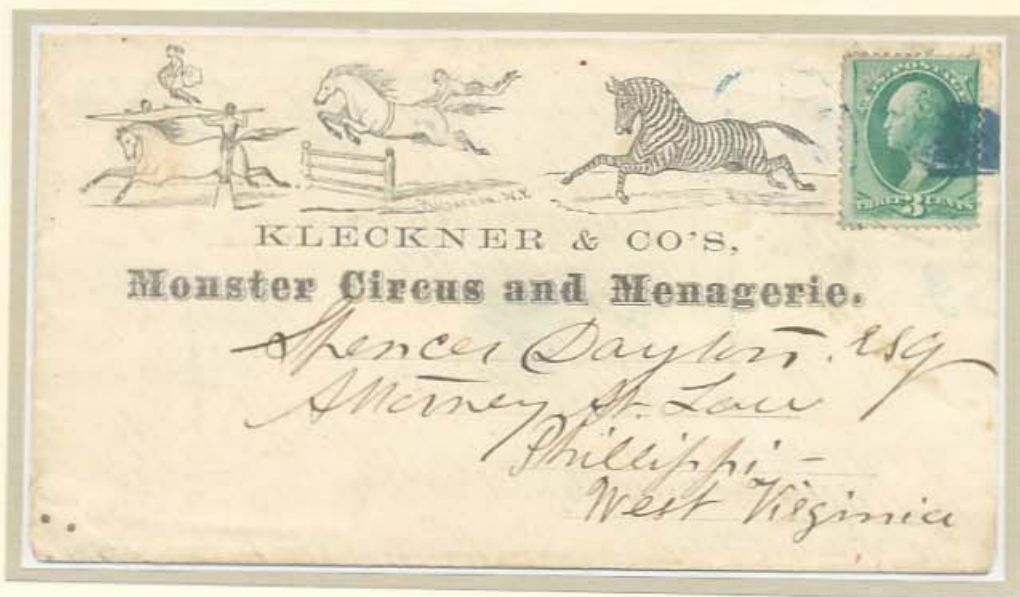 U.S. POSTAGE
THREE 3 CENTS
KLECKNER & CO'S,
Monster Circus and Menagerie.
Spencer Dayton, Esq
Attorney At Law
Phillippi -
West Virginia